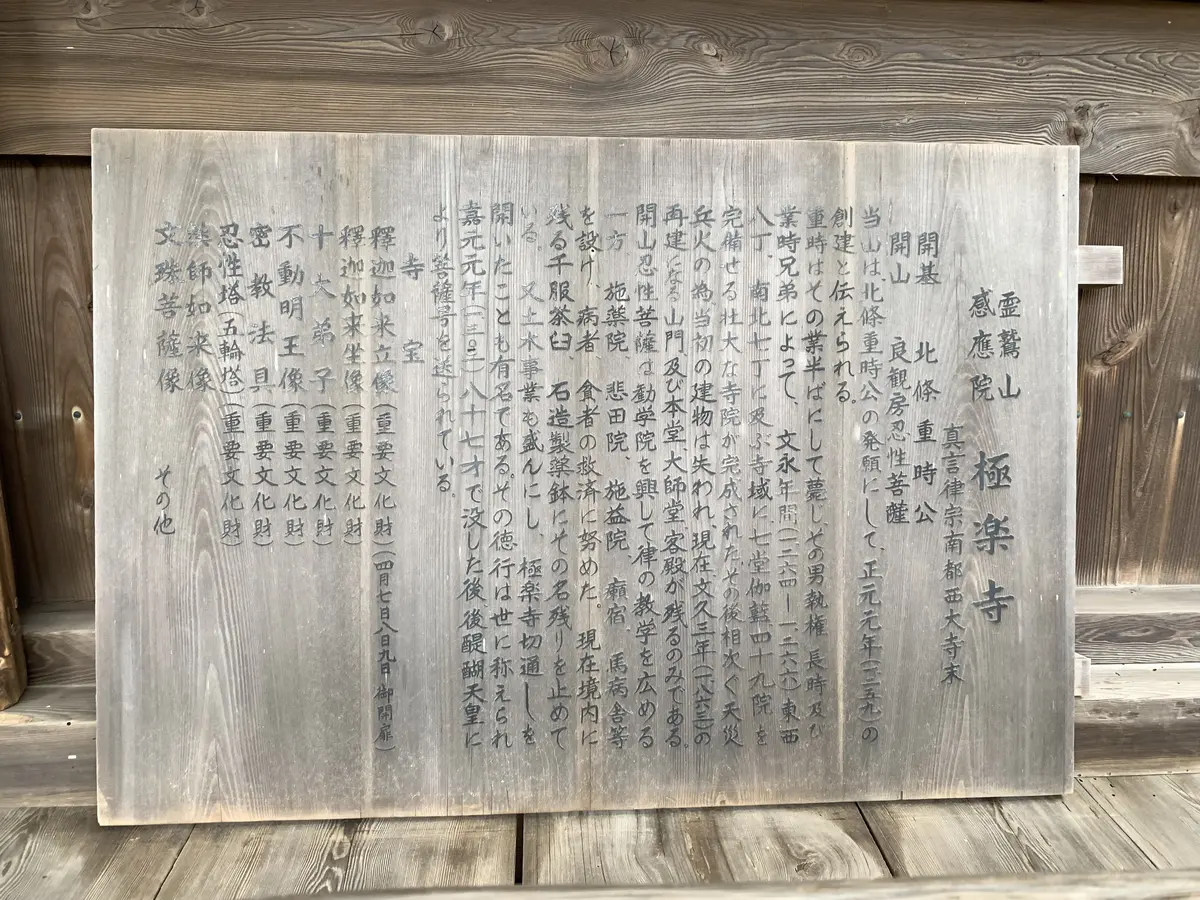 霊鷲山
感應院
極楽寺
真言律宗南都西大寺末
開基 北條重時公
開山 良観房忍性菩薩
当山は、北條重時公の発願にして、正元元年(一二五九)の
創建と伝えられる。
重時はその業半ばにして薨し、その男執権 長時及び
業時兄弟によって、文永年間(一二六四―一二六六)東西
八丁、南北七丁に及ぶ寺域に、七堂伽藍四十九院を
完備せる壮大な寺院が完成された。その後相次ぐ天災
兵火の為当初の建物は失われ、現在文久三年(一八六三)の
再建になる山門及び本堂、大師堂、客殿が残るのみである。
開山忍性菩薩は勧学院を興して律の教学を広める
一方、施薬院 悲田院、施益院、癩宿、馬病舎等
を設け、病者 貧者の救済に努めた。現在境内に
残る千服茶臼、石造製薬鉢にその名残りを止めて
いる。又土木事業も盛んにし、極楽寺切通しを
開いたことも有名である。その徳行は世に称えられ
嘉元元年(一三〇三)八十七才で没した後、後醍醐天皇に
より菩薩号を送られている。
寺宝
釋迦如来立像(重要文化財)(四月七日八日九日 御開扉)
釋迦如来坐像(重要文化財)
十大弟子(重要文化財)
不動明王像(重要文化財)
密教法具(重要文化財)
忍性塔(五輪塔)(重要文化財)
薬師如来像
文珠菩薩像 その他